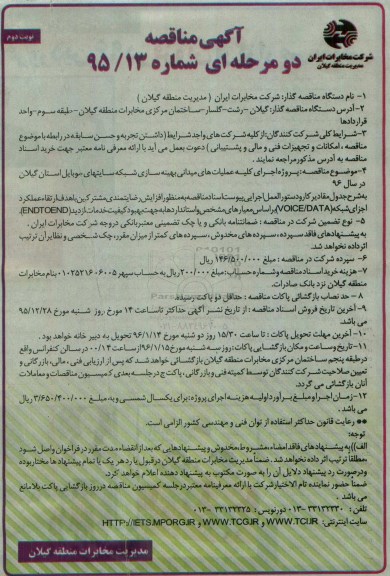 نوبت دوم
آگهی مناقصه
دو مرحله ای شماره ۹۵/۱۳
شرکت مخابرات ایران
مدیریت منطقه گیلان
۱- نام دستگاه مناقصه گذار: شرکت مخابرات ایران ( مدیریت منطقه گیلان )
۲-آدرس دستگاه مناقصه گذار: گیلان -رشت-گلسار-ساختمان مرکزی مخابرات منطقه گیلان-طبقه سوم-واحد
قراردادها
۳-شرایط کلی شرکت کنندگان: از کلیه شرکت های واجد شرایط (داشتن تجربه و حسن سابقه در رابطه با موضوع
مناقصه ، امکانات و تجهیزات فنی و مالی و پشتیبانی ) دعوت بعمل می آید با ارائه معرفی نامه معتبر جهت خرید اسناد
مناقصه به آدرس مذکور مراجعه نمایند .
۴-موضوع مناقصه: پروژه اجرای کلیه عملیات های میدانی بهینه سازی شبکه سایتهای موبایل استان گیلان
در سال ۹۶
به شرح جدول مقادیر کار و دستورالعمل اجرایی پیوست اسناد مناقصه به منظور افزایش رضایتمندی مشترکین با هدف ارتقاء عملکرد
اجزای شبکه (VOICE/DATA) براساس معیارهای مشخص و استانداردها به جهت بهبود کیفیت خدمات از دید (ENDTOEND)
۵- نوع تضمین شرکت در مناقصه : ضمانتنامه بانکی و یا چک تضمینی معتبر بانکی در وجه شرکت مخابرات ایران .
به پیشنهادهای فاقد سپرده ، سپرده های مخدوش ، سپرده های کمتر از میزان مقرر، چک شخصی و نظایر آن ترتیب
اثر داده نخواهد شد.
۶- سپرده شرکت در مناقصه : مبلغ ۱۴۶/۵۰۰/۰۰۰ ریال
۷- هزینه خرید اسناد مناقصه و شماره حساب: مبلغ ۲۰۰/۰۰۰ ریال به حساب سپهر ۰۱۰۲۵۲۱۶۰۶۰۰۵ بنام مخابرات
منطقه گیلان نزد بانک صادرات.
۸- حد نصاب بازگشائی پاکات مناقصه : حداقل دو پاکت رسیده.
۹-آخرین تاریخ فروش اسناد مناقصه : از تاریخ نشر آگهی حداکثر تا ساعت ۱۴ مورخ روز شنبه مورخ ۹۵/۱۲/۲۸
می باشد.
۱۰-آخرین مهلت تحویل پاکات : تا ساعت ۱۵/۳۰ روز دو شنبه مورخ ۹۶/۱/۱۴ تحویل به دبیر خانه خواهد بود .
۱۱-تاریخ و ساعت و مکان بازگشایی پاکات: روز سه شنبه مورخ ۹۶/۱/۱۵ از ساعت ۰۰/۱۴ در سالن کنفرانس واقع
در طبقه پنجم ساختمان مرکزی مخابرات منطقه گیلان بازگشائی خواهد شد که پس از ارزیابی فنی ، مالی ، بازرگانی و
تعیین صلاحیت شرکت کنندگان توسط کمیته فنی و بازرگانی ، پاکت ج در جلسه بعدی کمیسیون مناقصات و معاملات
آنان بازگشائی می گردد.
۱۲-زمان اجرا و مبلغ برآورد اولیه هزینه اجرای پروژه: برای یکسال شمسی و به مبلغ ۳/۶۵۰/۴۰۰/۰۰۰ ریال می
باشد .
** رعایت قانون حداکثر استفاده از توان فنی و مهندسی کشور الزامی است.
توجه:
الف) به پیشنهادهای فاقد امضاء، مشروط، مخدوش و پیشنهادهایی که بعد از انقضاء مدت مقرر در فراخوان واصل شود
،مطلقا ترتیب اثر داده نخواهد شد. ضمنا مدیریت مخابرات منطقه گیلان در قبول یا رد هر یک یا تمام پیشنهادها مختار بوده
و در صورت رد پیشنهاد دلایل آن را به صورت مکتوب به پیشنهاد دهنده اعلام خواهد کرد.
ضمنا حضور نماینده تام الاختیار شرکت با ارائه معرفینامه معتبر در جلسه کمیسیون مناقصه در روز بازگشایی پاکت بلامانع
می باشد .
تلفن : ۳۳۱۳۲۳۳۰ -۰۱۳ دورنویس : ۳۳۱۳۲۳۲۵ -۰۱۳
سایت اینترنتی: WWW.TCI.IR و WWW.TCG.IR و HTTP://IETS.MPORG.IR
مدیریت مخابرات منطقه گیلان